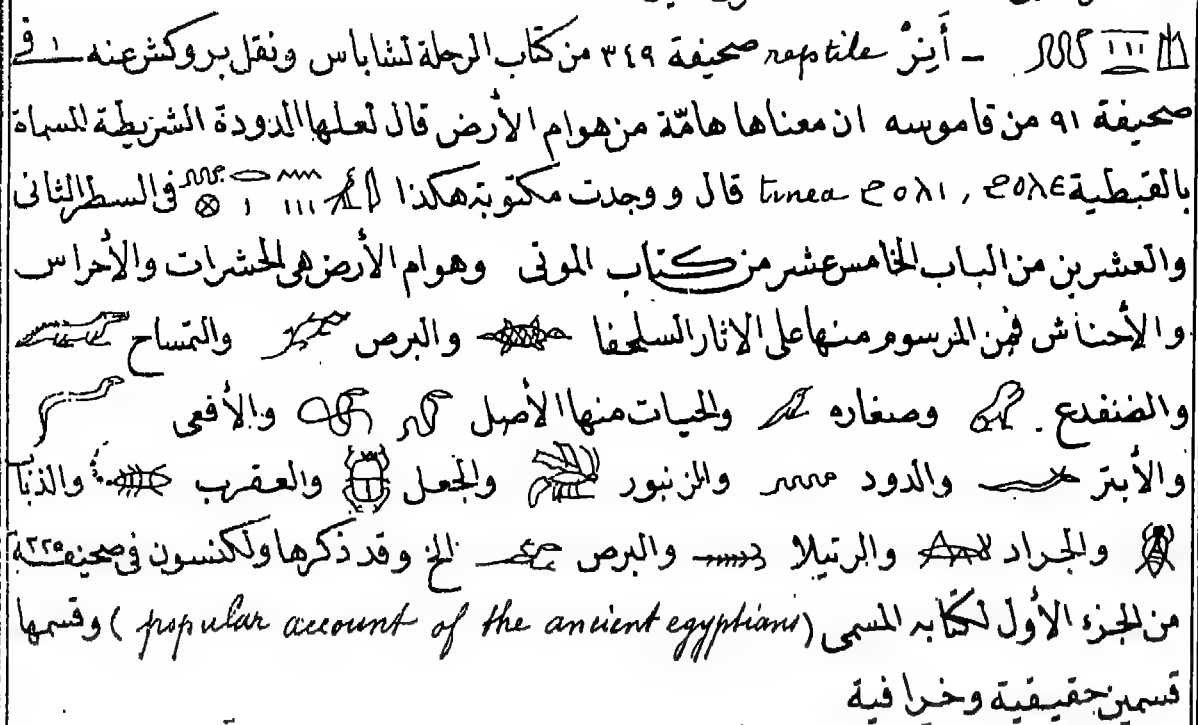 ـ أَيِنرْ reptile صحيفة ٣٤٩ من كتاب الرحلة لشاباس ونقل بروكش عنه فى
صحيفة ٩١ من قاموسه ان معناها هامّة من هوام الأرض قال لعلها الدودة الشريطية المسماة
بالقبطية ϩⲟⲗⲓ , ϩⲟⲗⲉ tinea قال ووجدت مكتوبة هكذا فى السطر الثانى
والعشرين من الباب الخامس عشر من كتاب الموتى وهوام الأرض هى الحشرات والأحراس
والأحناش فمن المرسوم منها على الاثار السلحفا والبرص والتمساح
والضفدع . وصغاره والحيات منها الأصل والأفعى
والأبتر والدود والزنبور والجعل والعقرب والذباب
والجراد والرتيلا والبرص الخ وقد ذكرها ولكنسون فى صحيفة ٢٢٥
من الجزء الأول لكتابه المسمى (popular account of the ancient egyptians) وقسمها
قسمين حقيقية وخرافية